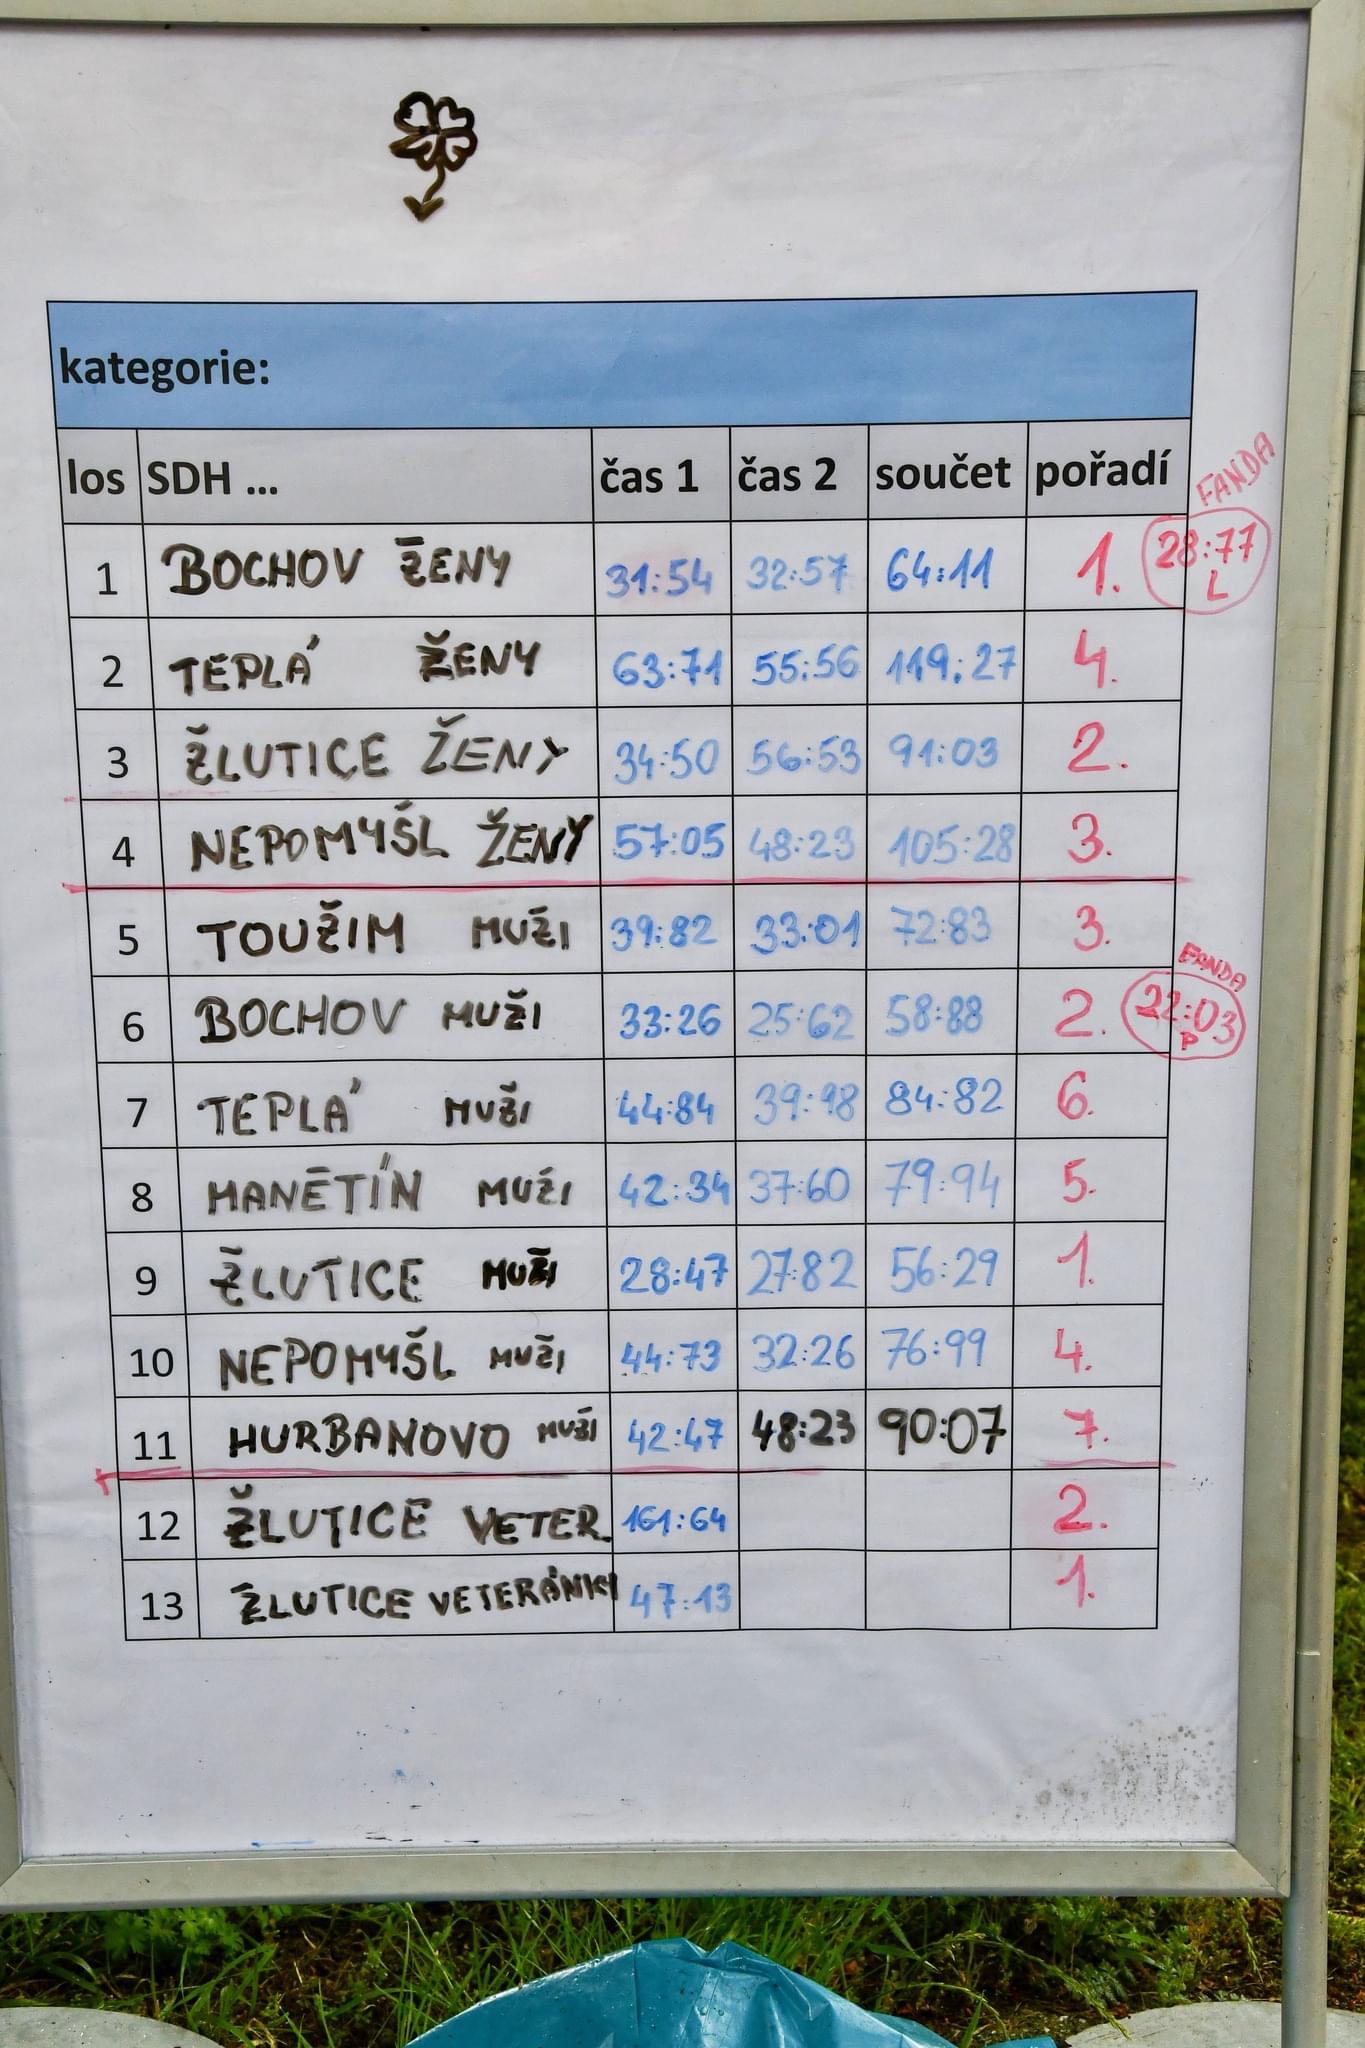 kategorie:
los SDH ... čas 1 čas 2 součet pořadí
FANDA
1 BOCHOV ŽENY 31:54 32:57 64:11 1. 28:77
L
2 TEPLÁ ŽENY 63:71 55:56 119:27 4.
3 ŽLUTICE ŽENY 34:50 56:53 91:03 2.
4 NEPOMYŠL ŽENY 57:05 48:23 105:28 3.
5 TOUŽIM MUŽI 39:82 33:01 72:83 3.
FANDA
6 BOCHOV MUŽI 33:26 25:62 58:88 2. 22:03
P
7 TEPLÁ MUŽI 44:84 39:98 84:82 6.
8 MANĚTÍN MUŽI 42:34 37:60 79:94 5.
9 ŽLUTICE MUŽI 28:47 27:82 56:29 1.
10 NEPOMYŠL MUŽI 44:73 32:26 76:99 4.
11 HURBANOVO MUŽI 42:47 48:23 90:07 7.
12 ŽLUTICE VETER. 161:64 2.
13 ŽLUTICE VETERÁNKY 47:13 1.